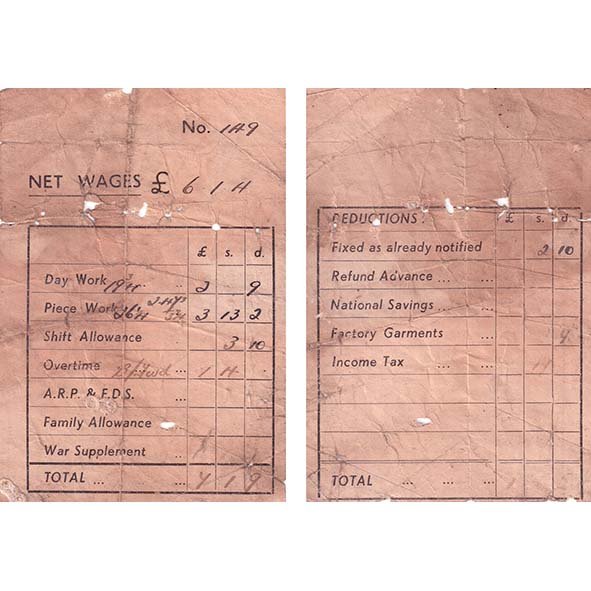 No. 149
NET WAGES £ 6 1 4
£ s. d.
Day Work .. 2 9
Piece Work 3 13 2
Shift Allowance 3 10
Overtime ... 1 4
A.R.P. & F.D.S. ..
Family Allowance
War Supplement ..
TOTAL ... ... 1 9
DEDUCTIONS : £ s. d.
Fixed as already notified 2 10
Refund Advance ... ...
National Savings ... ...
Factory Garments ...
Income Tax ... ...
TOTAL ... ... ...